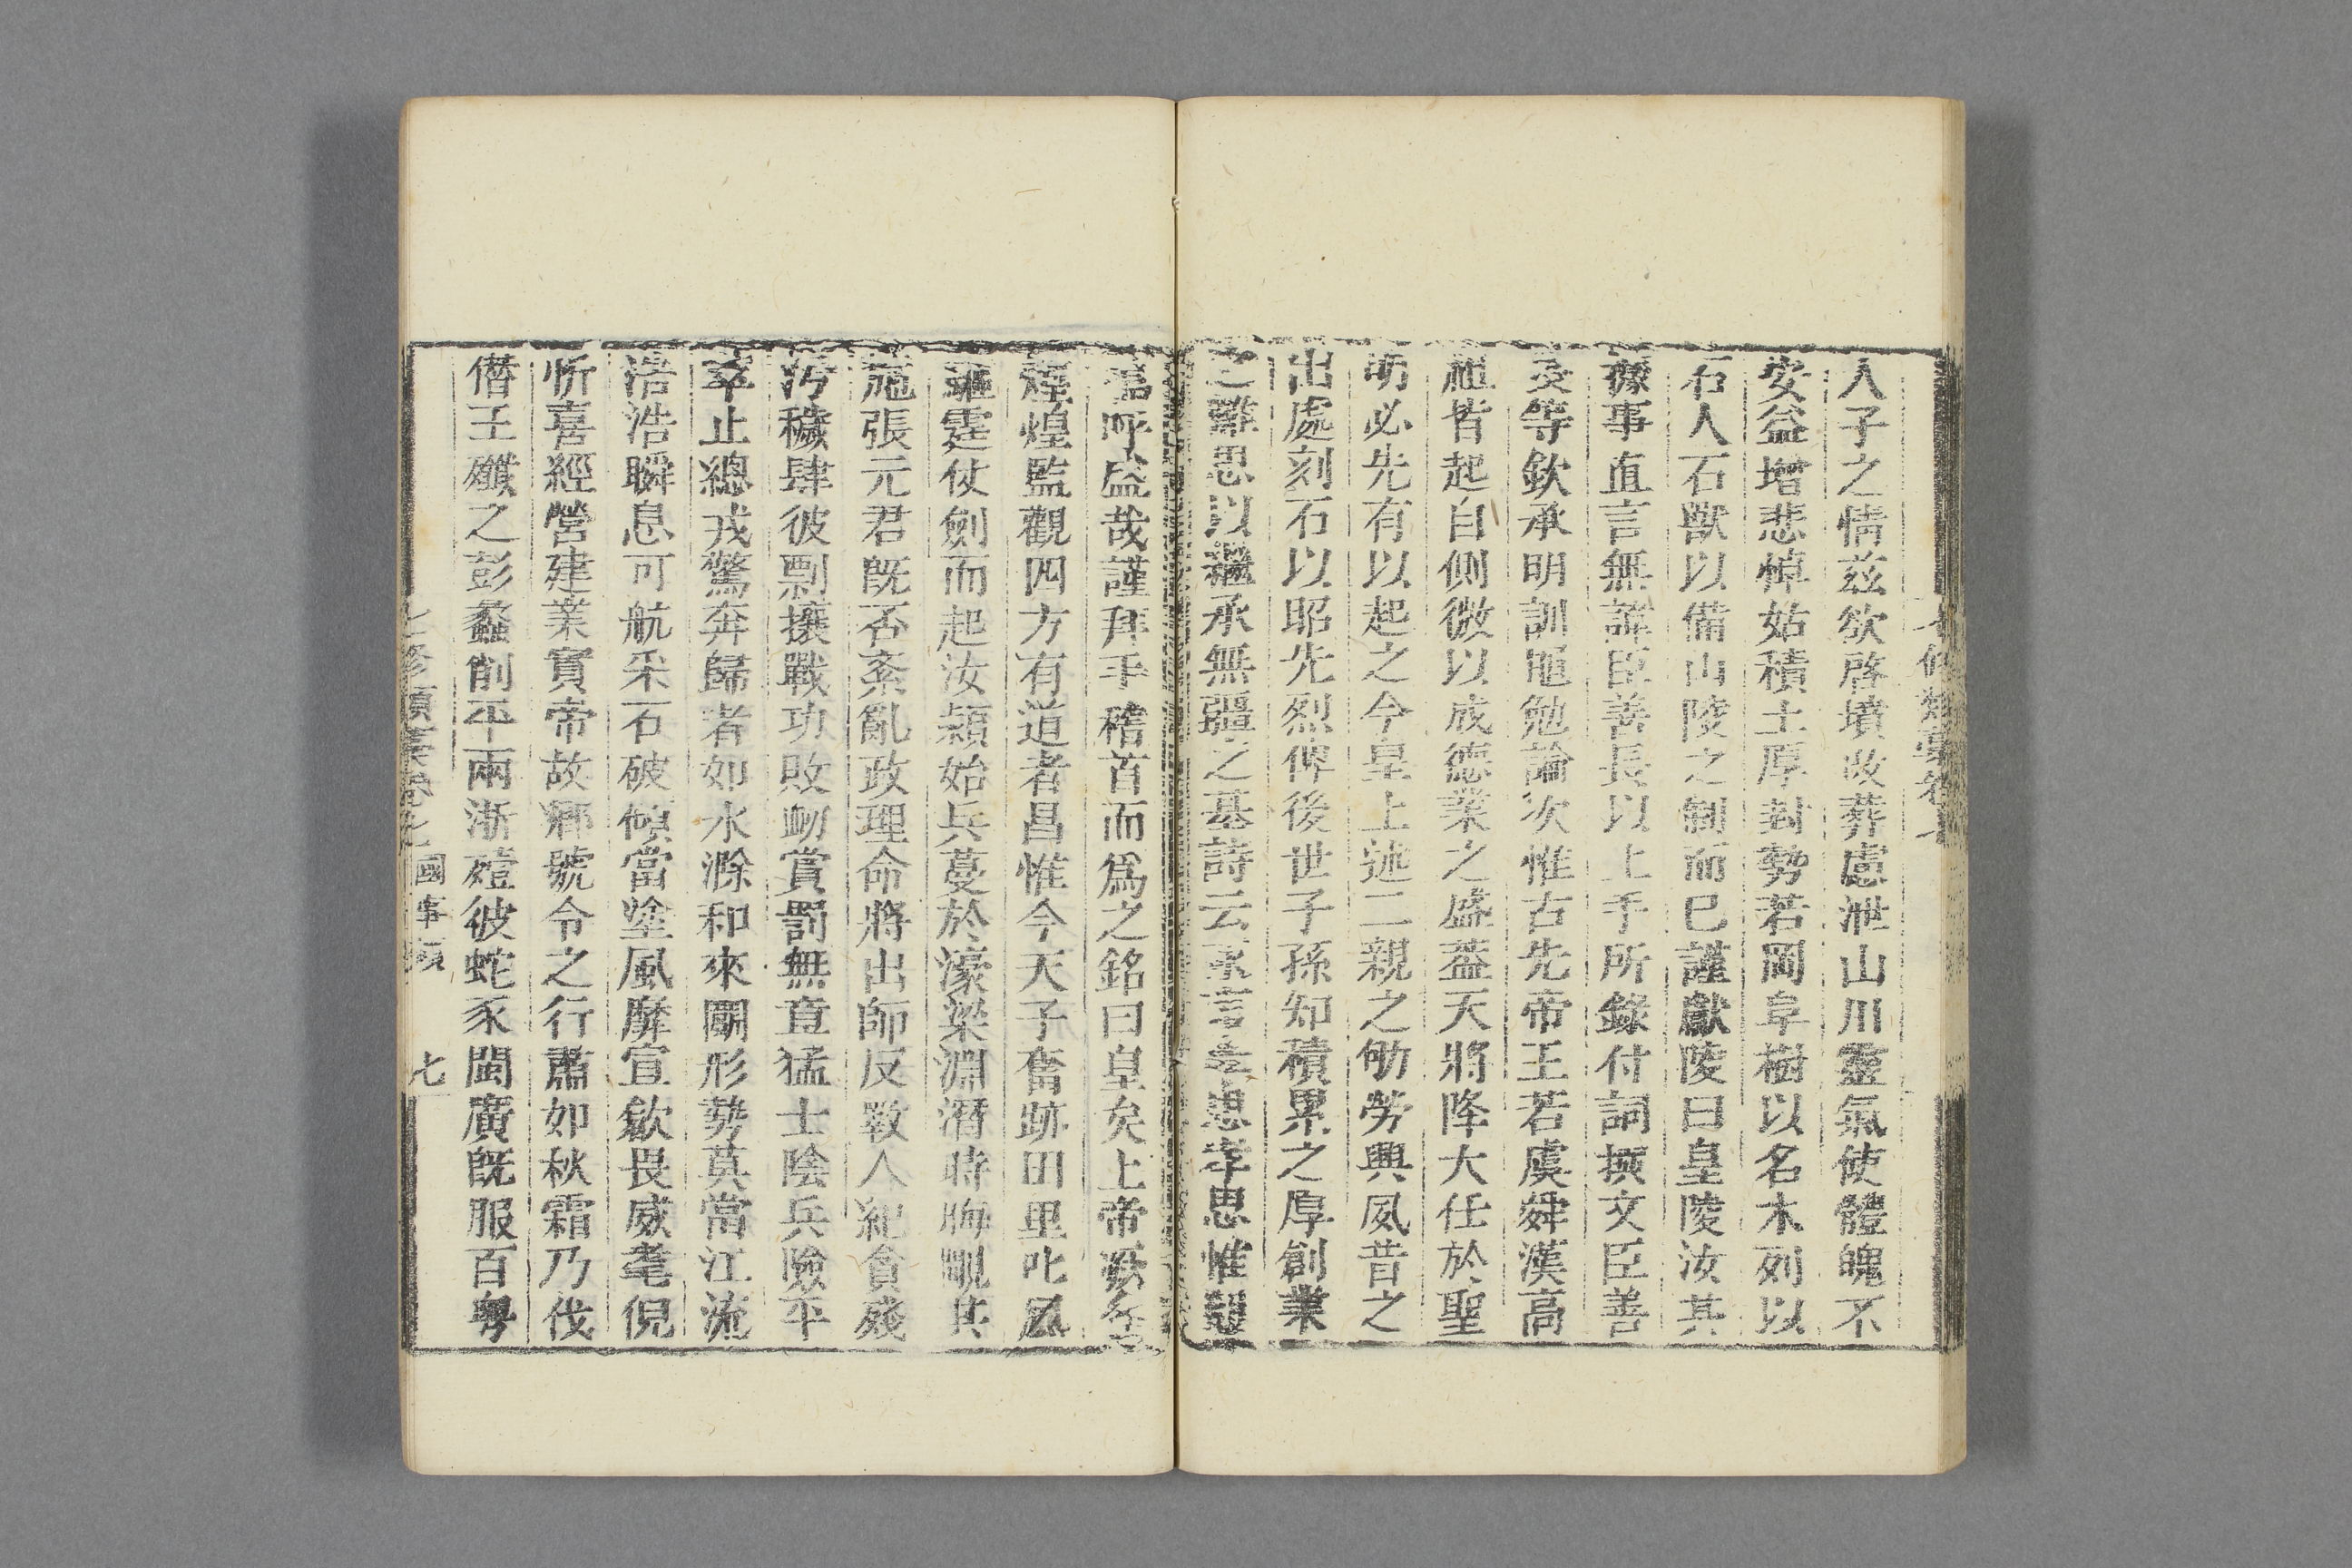 人子之情茲欲啓墳改葬慮泄山川靈氣使體魄不
安益增悲悼姑積土厚封勢若岡阜樹以名木列以
石人石獸以備山陵之制而已謹獻陵曰皇陵汝其
據事直言無諱臣善長以上手所錄付詞撰文臣善
受等欽承明訓黽勉論次惟古先帝王若虞舜漢高
祖皆起自側微以成德業之盛葢天將降大任於聖
明必先有以起之今皇上述二親之劬勞興夙昔之
出處刻石以昭先烈俾後世子孫知積累之厚創業
之難思以繼承無疆之基詩云永言孝思孝思惟
嗚呼盛哉謹拜手稽首而爲之銘曰皇矣上帝
煌煌監觀四方有道者昌惟今天子奮跡田里叱風
驅霆仗劍而起汝潁始兵蔓於濠梁淵潛時晦覵其
施張元君旣否紊亂政理命將出師反斁人紀貪殘
汚穢肆彼剽攘戰功敗衂賞罰無章猛士陰兵險平
萃止總戎驚奔歸者如水滁和來圍形勢莫當江流
浩浩瞬息可航采石破傾當塗風靡宣歙畏威耄倪
忻喜經營建業實帝故鄉號令之行肅如秋霜乃伐
僭王殲之彭蠡削平兩浙殪彼蛇豕閩廣旣服百粤
七修類稾卷七 國事類 七